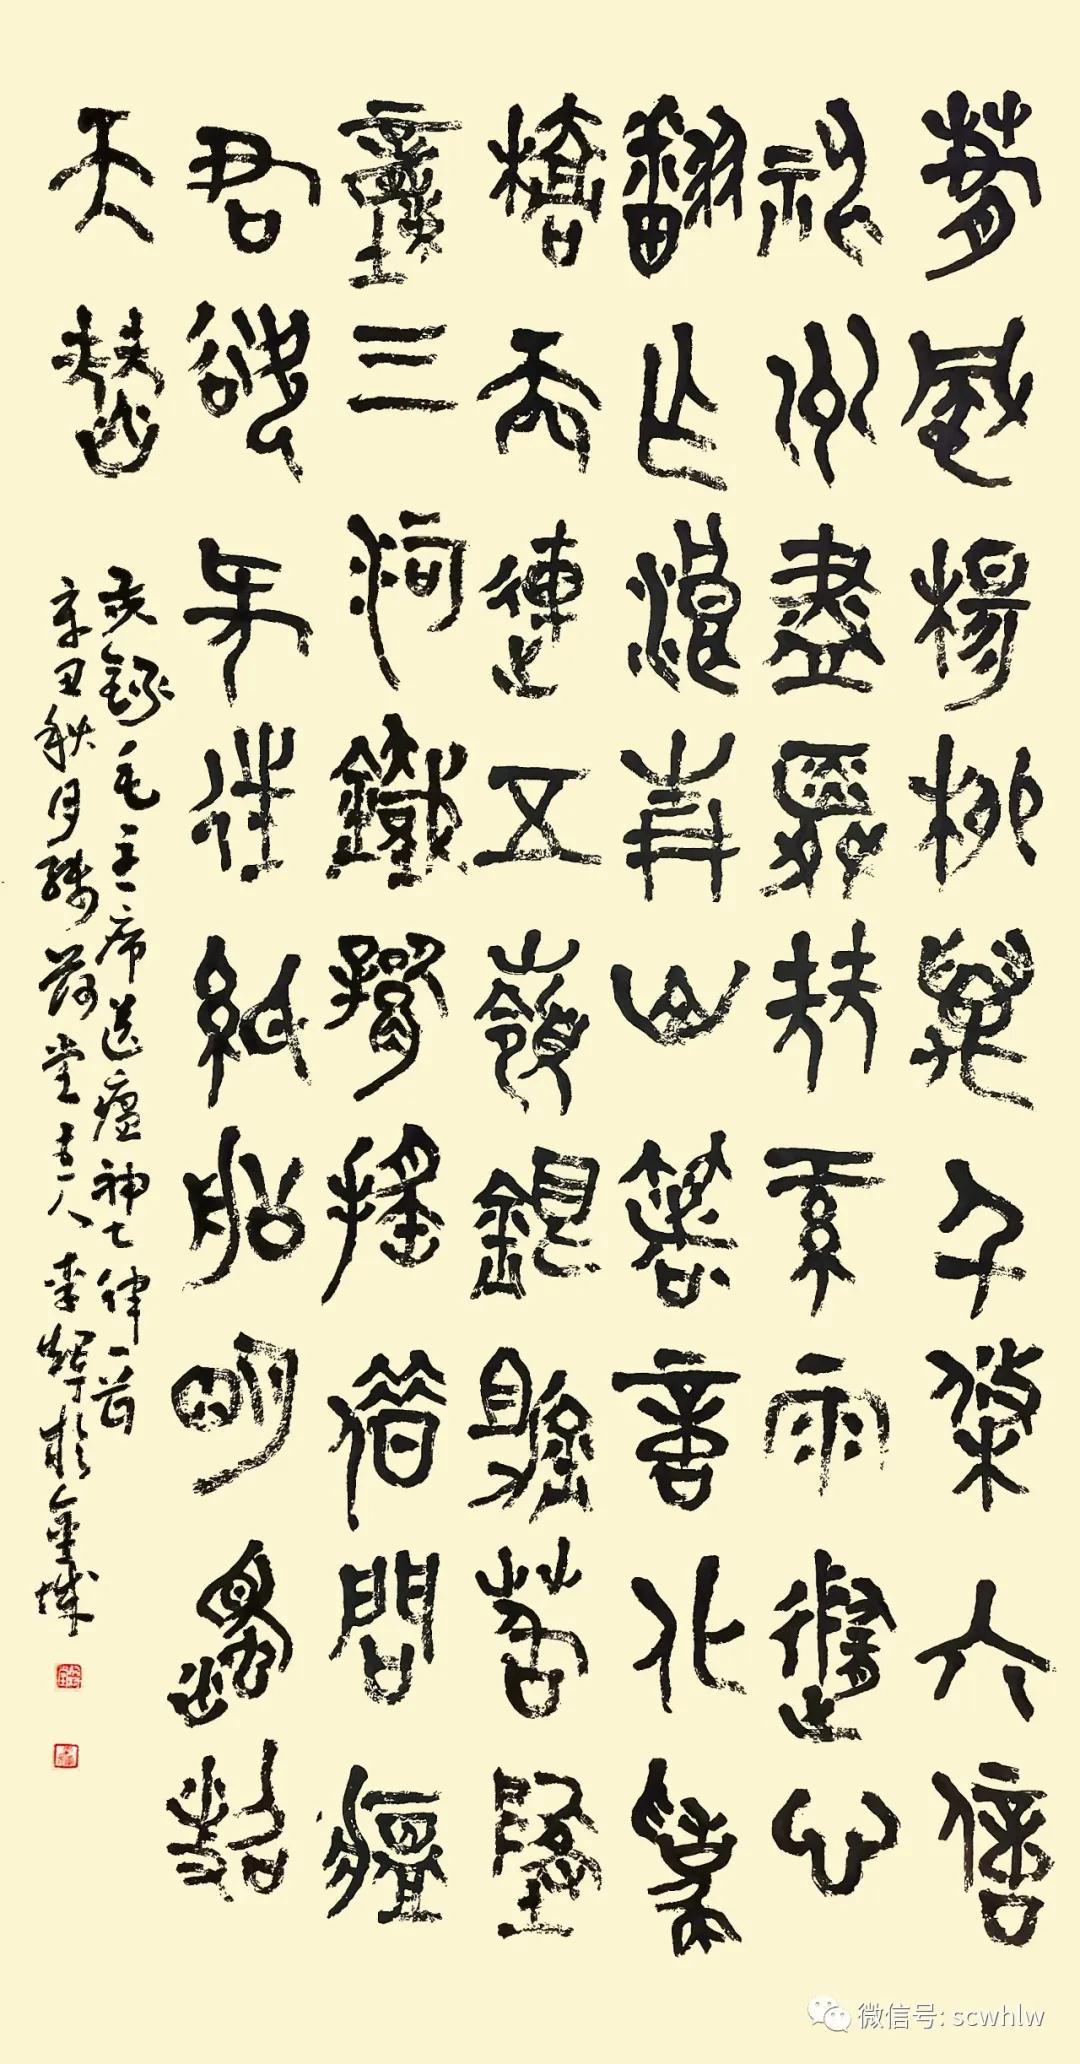 春風楊柳萬千條六億
神州盡舜堯紅雨隨心
翻作浪青山著意化為
橋天連五嶺銀鋤落地
動三河鐵臂搖借問瘟
君欲何往紙船明燭照
天燒
錄毛主席送瘟神七律一首
辛丑秋月荷堂主人李輝於金城
微信号: scwhlw